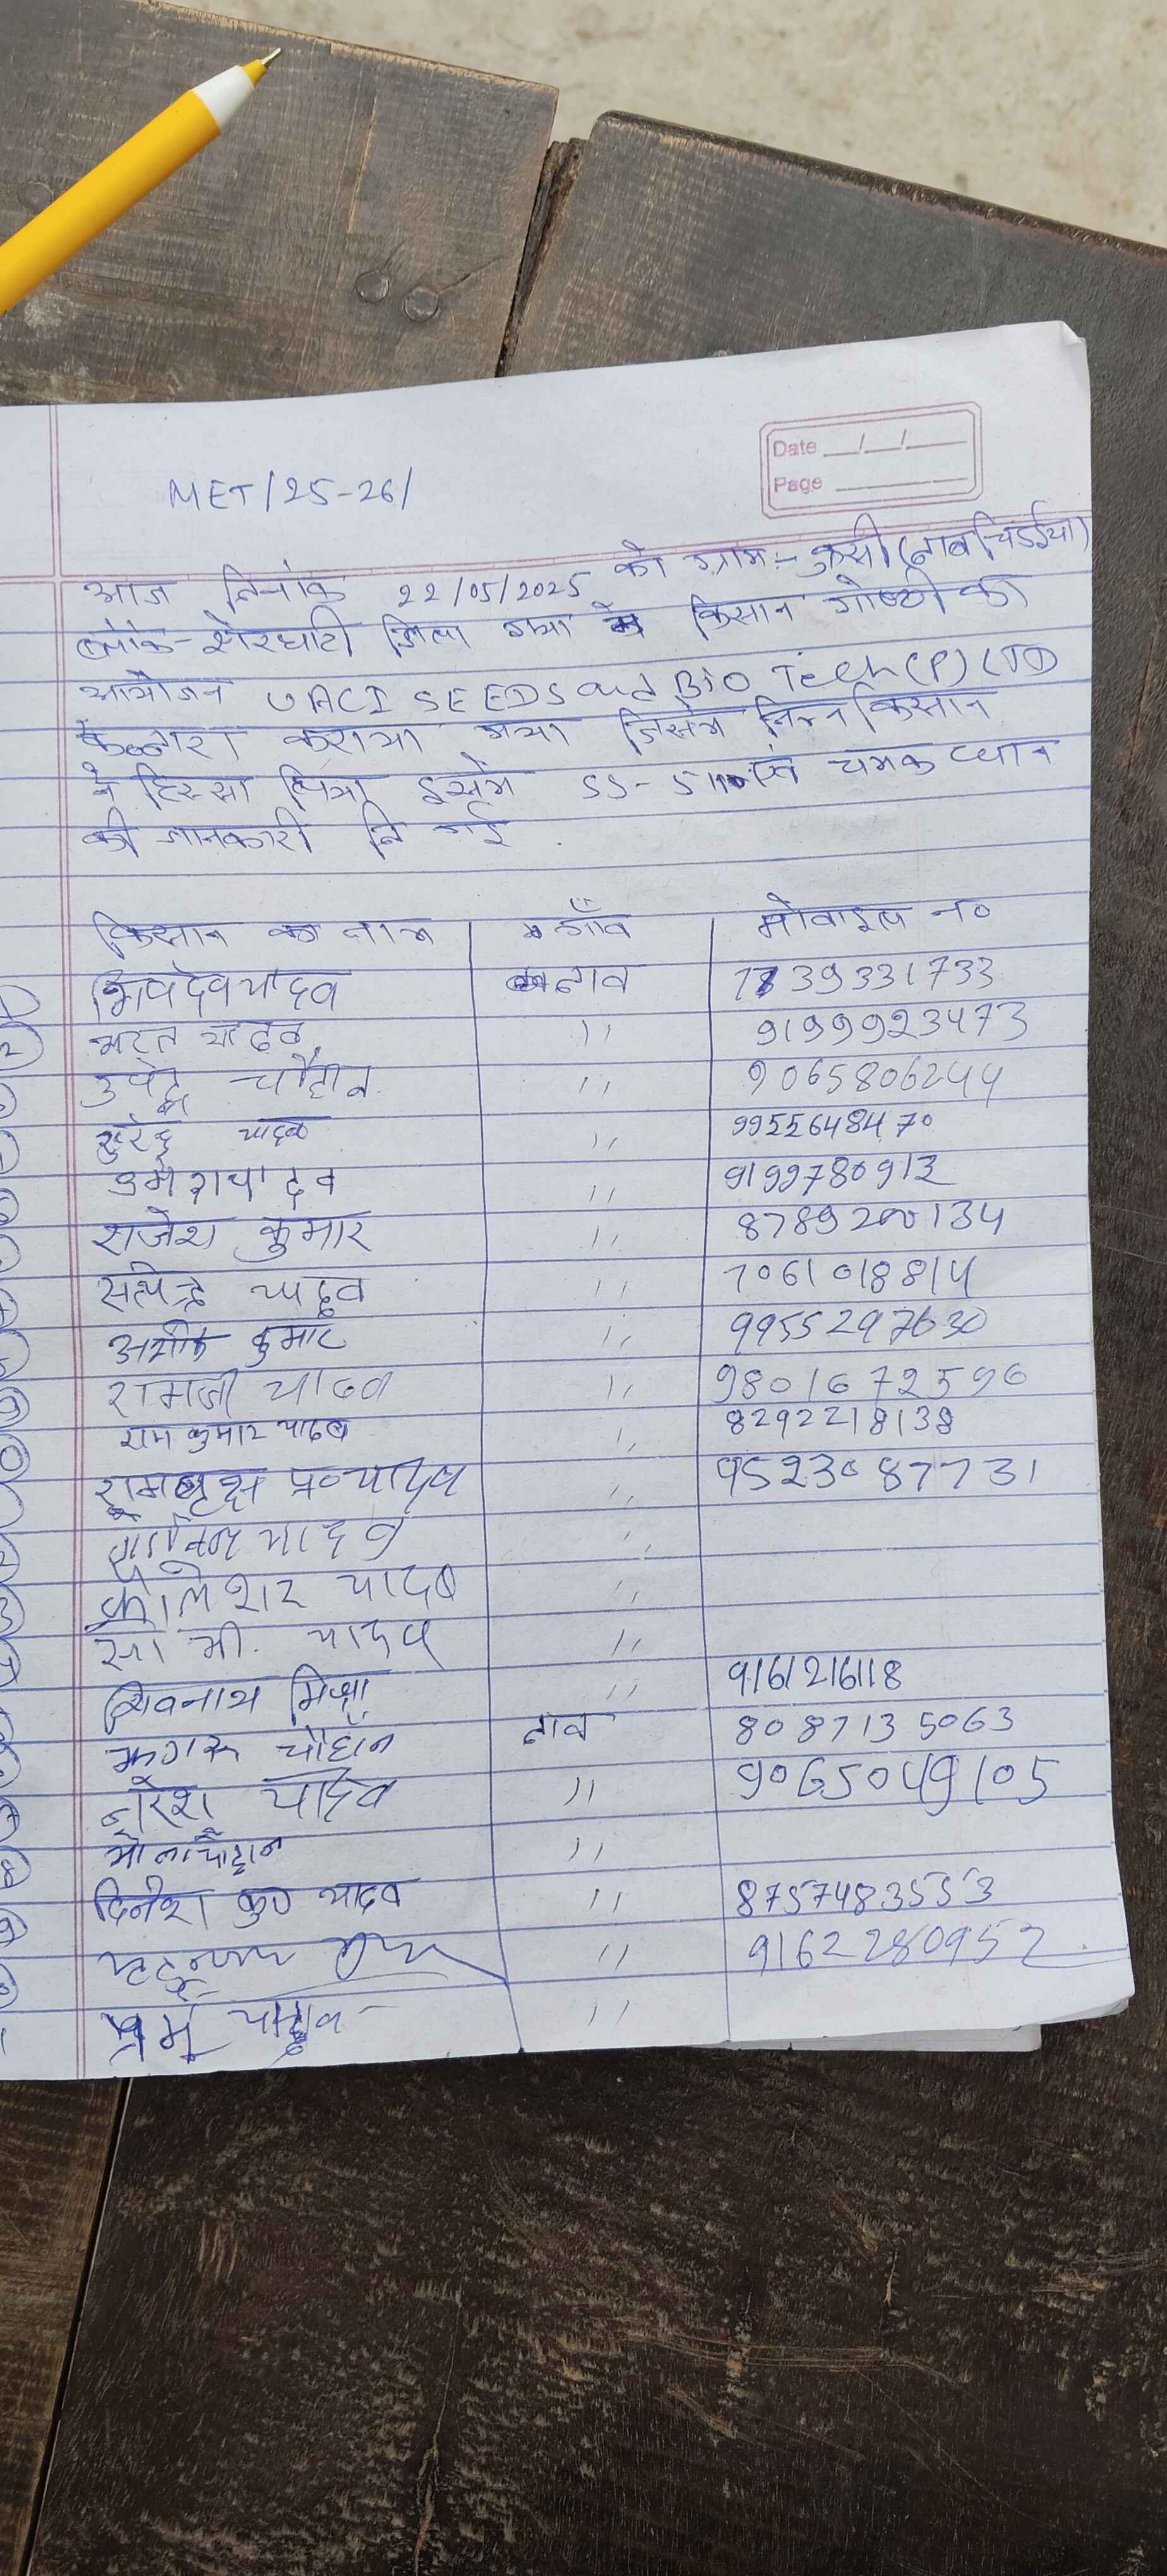 Date __/__/__
Page ______
MET/25-26/
आज दिनांक 22/05/2025 को ग्राम:- कुसी (ढाब चिडईया)
ब्लॉक-शेरघाटी जिला गया में किसान गोष्ठी का
आयोजन SEEDS and Bio Tech (P) LTD
के द्वारा कराया गया जिसमे निम्न किसान
ने हिस्सा लिया इसमें चमक धान
की जानकारी दि गई.
किसान का नाम गाँव मोवाइल नo
यादव ढाव 7739331733
2 भरत यादव " 9199923473
उपेंद्र चौहान " 9065806244
सुरेंद्र यादव " 9955648470
उमेश यादव " 9199780913
राजेश कुमार " 8789200134
सत्येन्द्र यादव " 7061018814
कुमार " 9955297630
रामजी यादव " 9801672596
राम कुमार यादव " 8292218138
रामबृक्ष प्र० यादव " 9523087731
यादव "
यादव "
यादव "
शिवनाथ मिस्त्री " 916121618
चौहान ढाव 8087135063
नरेश यादव " 9065049105
भोला चौहान "
दिनेश कु० यादव " 8757483553
" 9162280952
यादव "